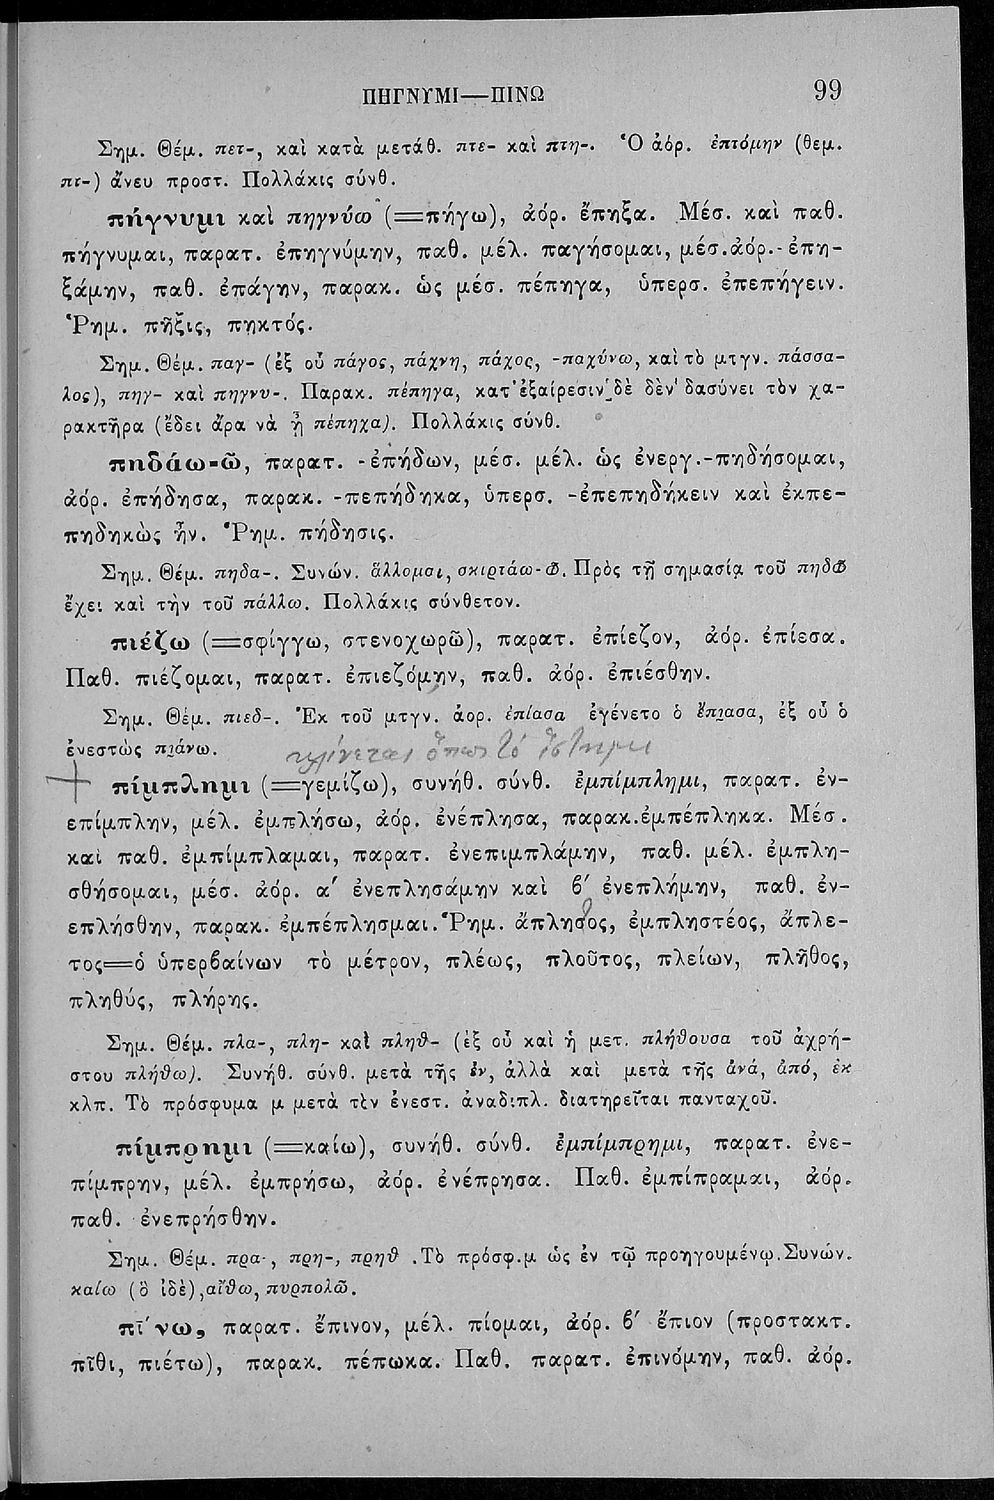 ΠΗΓΝΥΜΙ—ΠΙΝΩ 99
Σημ. Θέμ. πετ-, καὶ κατὰ μετάθ. πτε- καὶ πτη-. Ὁ ἀόρ. ἐπτόμην (θεμ.
πτ-) ἄνευ προστ. Πολλάκις σύνθ.
πήγνυμι καὶ πηγνύω (=πήγω), ἀόρ. ἔπηξα. Μέσ. καὶ παθ.
πήγνυμαι, παρατ. ἐπηγνύμην, παθ. μέλ. παγήσομαι, μέσ.ἀόρ.-ἐπη-
ξάμην, παθ. ἐπάγην, παρακ. ὡς μέσ. πέπηγα, ὑπερσ. ἐπεπήγειν.
Ῥημ. πῆξις, πηκτός.
Σημ. Θέμ. παγ- (ἐξ οὗ πάγος, πάχνη, πάχος, -παχύνω, καὶ τὸ μτγν. πάσσα-
λος), πηγ- καὶ πηγνυ-. Παρακ. πέπηγα, κατ' ἐξαίρεσιν δὲ δὲν δασύνει τὸν χα-
ρακτῆρα (ἔδει ἄρα νὰ ᾖ πέπηχα). Πολλάκις σύνθ.
πηδάω-ῶ, παρατ. -ἐπήδων, μέσ. μέλ. ὡς ἐνεργ.-πηδήσομαι,
ἀόρ. ἐπήδησα, παρακ. -πεπήδηκα, ὑπερσ. -ἐπεπηδήκειν καὶ ἐκπε-
πηδηκὼς ἦν. Ῥημ. πήδησις.
Σημ. Θέμ. πηδα-. Συνών. ἅλλομαι, σκιρτάω-ῶ. Πρὸς τῇ σημασίᾳ τοῦ πηδῶ
ἔχει καὶ τὴν τοῦ πάλλω. Πολλάκις σύνθετον.
πιέζω (=σφίγγω, στενοχωρῶ), παρατ. ἐπίεζον, ἀόρ. ἐπίεσα.
Παθ. πιέζομαι, παρατ. ἐπιεζόμην, παθ. ἀόρ. ἐπιέσθην.
Σημ. Θέμ. πιεδ-. Ἐκ τοῦ μτγν. ἀορ. ἐπίασα ἐγένετο ὁ ἔπιασα, ἐξ οὗ ὁ
ἐνεστὼς πιάνω. κλίνεται ὅπως τό ἵστημι
πίμπλημι (=γεμίζω), συνήθ. σύνθ. ἐμπίμπλημι, παρατ. ἐν-
επίμπλην, μέλ. ἐμπλήσω, ἀόρ. ἐνέπλησα, παρακ.ἐμπέπληκα. Μέσ.
καὶ παθ. ἐμπίμπλαμαι, παρατ. ἐνεπιμπλάμην, παθ. μέλ. ἐμπλη-
σθήσομαι, μέσ. ἀόρ. α' ἐνεπλησάμην καὶ β' ἐνεπλήμην, παθ. ἐν-
επλήσθην, παρακ. ἐμπέπλησμαι. Ῥημ. ἄπλησος, ἐμπληστέος, ἄπλε-
τος=ὁ ὑπερβαίνων τὸ μέτρον, πλέως, πλοῦτος, πλείων, πλῆθος,
πληθύς, πλήρης.
Σημ. Θέμ. πλα-, πλη- καὶ πληθ- (ἐξ οὗ καὶ ἡ μετ. πλήθουσα τοῦ ἀχρή-
στου πλήθω). Συνήθ. σύνθ. μετὰ τῆς ἐν, ἀλλὰ καὶ μετὰ τῆς ἀνά, ἀπό, ἐκ
κλπ. Τὸ πρόσφυμα μ μετὰ τὸν ἐνεστ. ἀναδιπλ. διατηρεῖται πανταχοῦ.
πίμπρημι (=καίω), συνήθ. σύνθ. ἐμπίμπρημι, παρατ. ἐνε-
πίμπρην, μέλ. ἐμπρήσω, ἀόρ. ἐνέπρησα. Παθ. ἐμπίπραμαι, ἀόρ.
παθ. ἐνεπρήσθην.
Σημ. Θέμ. πρα-, πρη-, πρηθ .Τὸ πρόσφ.μ ὡς ἐν τῷ προηγουμένῳ.Συνών.
καίω (ὃ ἰδὲ),αἴθω, πυρπολῶ.
πί'νω, παρατ. ἔπινον, μέλ. πίομαι, ἀόρ. β' ἔπιον (προστακτ.
πῖθι, πιέτω), παρακ. πέπωκα. Παθ. παρατ. ἐπινόμην, παθ. ἀόρ.